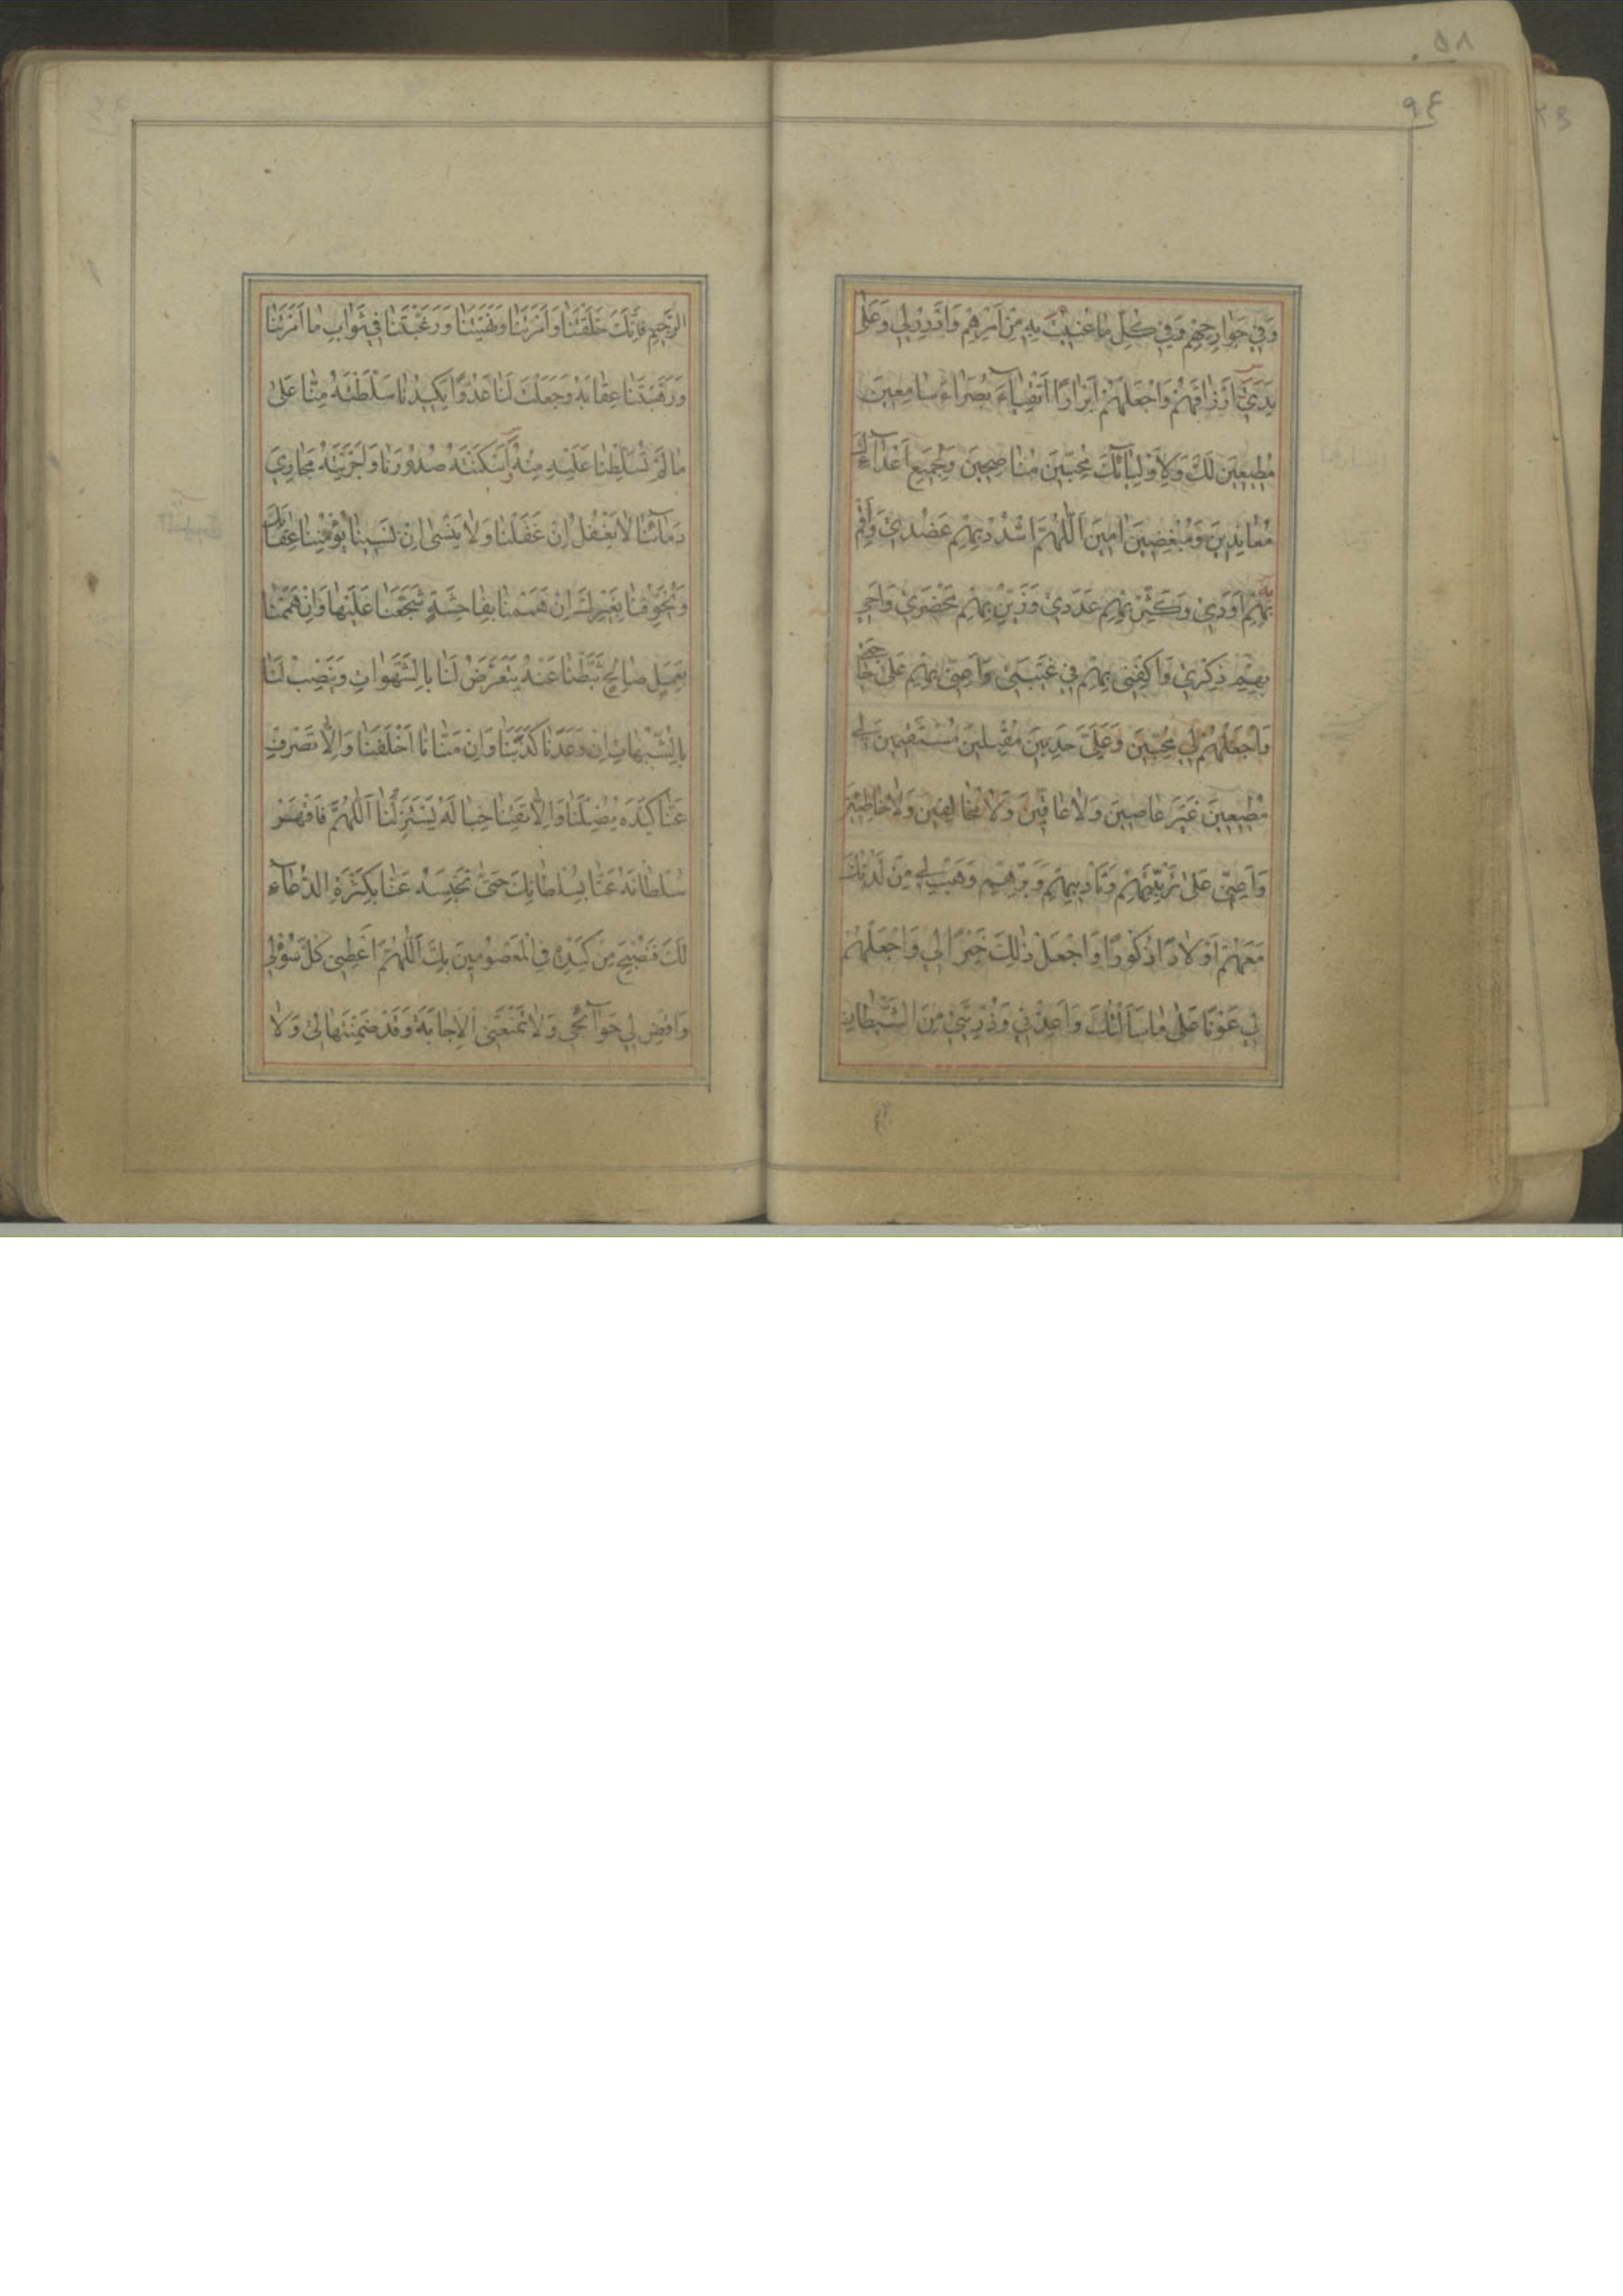 ٩٤
وَفِي جَوَارِحِهِمْ وَفِي كُلِّ مَا عُنِيتُ بِهِ مِنْ اَمْرِهِمْ وَاَدْرِرْ لِي وَعَلٰى
يَدَيَّ اَرْزَاقَهُمْ وَاجْعَلْهُمْ اَبْرَارًا اَتْقِيَآءَ بُصَرَاءَ سَامِعِينَ
مُطِيعِينَ لَكَ وَلِاَوْلِيَآئِكَ مُحِبِّينَ مُنَاصِحِينَ وَلِجَمِيعِ اَعْدَآئِكَ
مُعَانِدِينَ وَمُبْغِضِينَ اٰمِينَ اَللّٰهُمَّ اشْدُدْ بِهِمْ عَضُدِي وَاَقِمْ
بِهِمْ اَوَدِي وَكَثِّرْ بِهِمْ عَدَدِي وَزَيِّنْ بِهِمْ مَحْضَرِي وَاَحْيِ
بِهِمْ ذِكْرِي وَاكْفِنِي بِهِمْ فِي غَيْبَتِي وَاَعِنِّي بِهِمْ عَلٰى حَاجَتِي
وَاجْعَلْهُمْ لِي مُحِبِّينَ وَعَلَيَّ حَدِبِينَ مُقْبِلِينَ مُسْتَقِيمِينَ لِي
مُطِيعِينَ غَيْرَ عَاصِينَ وَلَا عَاقِّينَ وَلَا مُخَالِفِينَ وَلَا خَاطِئِينَ
وَاَعِنِّي عَلٰى تَرْبِيَتِهِمْ وَتَأْدِيبِهِمْ وَبِرِّهِمْ وَهَبْ لِي مِنْ لَدُنْكَ
مَعَهُمْ اَوْلَادًا ذُكُورًا وَاجْعَلْ ذٰلِكَ خَيْرًا لِي وَاجْعَلْهُمْ
لِي عَوْنًا عَلٰى مَا سَاَلْتُكَ وَاَعِذْنِي وَذُرِّيَّتِي مِنَ الشَّيْطَانِ
الرَّجِيمِ فَاِنَّكَ خَلَقْتَنَا وَاَمَرْتَنَا وَنَهَيْتَنَا وَرَغَّبْتَنَا فِي ثَوَابِ مَا اَمَرْتَنَا
وَرَهَّبْتَنَا عِقَابَهُ وَجَعَلْتَ لَنَا عَدُوًّا يَكِيدُنَا سَلَّطْتَهُ مِنَّا عَلٰى
مَا لَمْ تُسَلِّطْنَا عَلَيْهِ مِنْهُ اَسْكَنْتَهُ صُدُورَنَا وَاَجْرَيْتَهُ مَجَارِيَ
دِمَآئِنَا لَا يَغْفُلُ اِنْ غَفَلْنَا وَلَا يَنْسٰى اِنْ نَسِينَا يُؤْمِنُنَا عِقَابَكَ
وَيُخَوِّفُنَا بِغَيْرِكَ اِنْ هَمَمْنَا بِفَاحِشَةٍ شَجَّعَنَا عَلَيْهَا وَاِنْ هَمَمْنَا
بِعَمَلٍ صَالِحٍ ثَبَّطَنَا عَنْهُ يَتَعَرَّضُ لَنَا بِالشَّهَوَاتِ وَيَنْصِبُ لَنَا
بِالشُّبُهَاتِ اِنْ وَعَدَنَا كَذَبَنَا وَاِنْ مَنَّانَا اَخْلَفَنَا وَاِلَّا تَصْرِفْ
عَنَّا كَيْدَهُ يُضِلَّنَا وَاِلَّا تَقِنَا خَبَالَهُ يَسْتَزِلَّنَا اَللّٰهُمَّ فَاقْهَرْ
سُلْطَانَهُ عَنَّا بِسُلْطَانِكَ حَتّٰى تَحْبِسَهُ عَنَّا بِكَثْرَةِ الدُّعَآءِ
لَكَ فَنُصْبِحَ مِنْ كَيْدِهِ فِي الْمَعْصُومِينَ بِكَ اَللّٰهُمَّ اَعْطِنِي كُلَّ سُؤْلِي
وَاقْضِ لِي حَوَآئِجِي وَلَا تَمْنَعْنِي الْاِجَابَةَ وَقَدْ ضَمِنْتَهَا لِي وَلَا